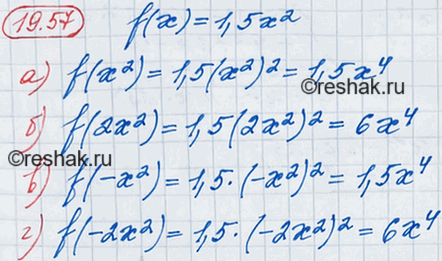 19.57 f(x) = 1,5x²
а) f(x²) = 1,5(x²)² = 1,5x⁴
©reshak.ru
б) f(2x²) = 1,5(2x²)² = 6x⁴
©reshak.ru
в) f(-x²) = 1,5·(-x²)² = 1,5x⁴
©reshak.ru
г) f(-2x²) = 1,5·(-2x²)² = 6x⁴